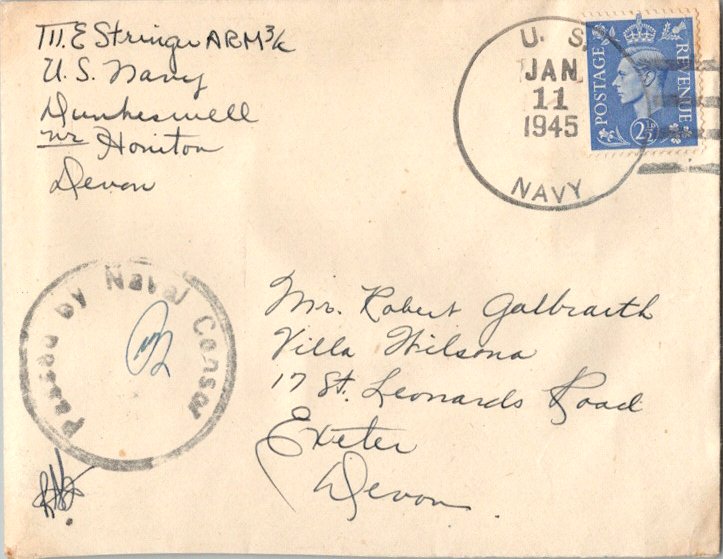 M. E Stringer ARM 3/c
U. S. Navy
Dunkeswell
nr Honiton
Devon
U. S.
JAN
11
1945
NAVY
POSTAGE REVENUE
2½D
Passed by Naval Censor
Mr. Robert Galbraith
Villa Wilsona
17 St. Leonards Road
Exeter
Devon